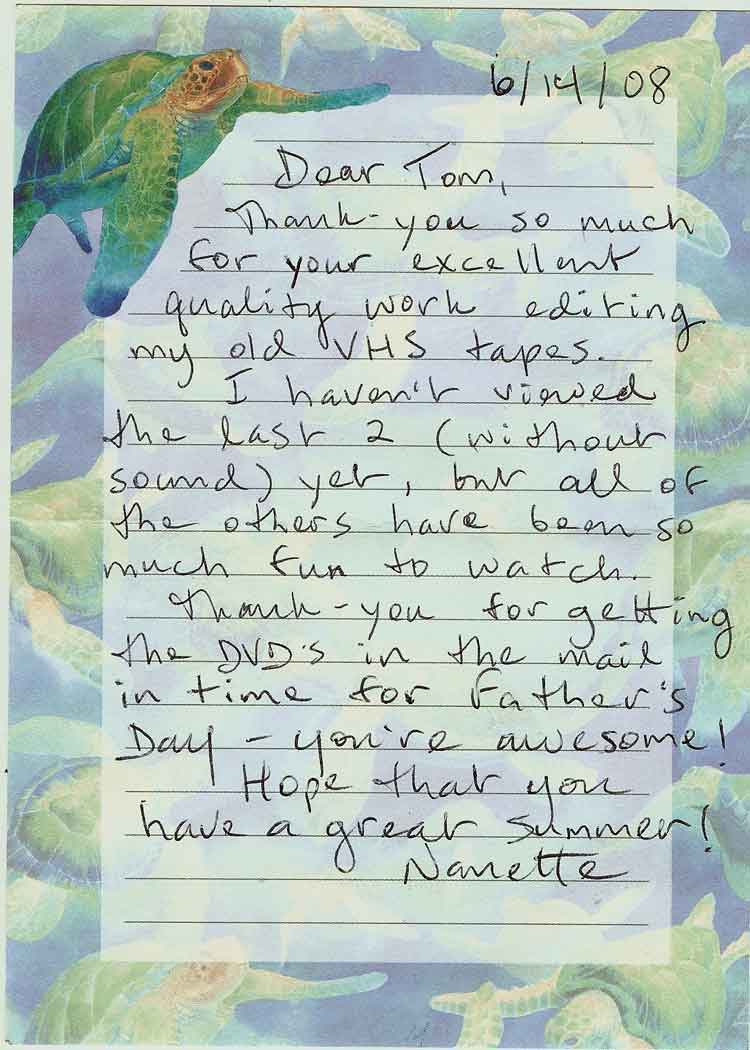 6/14/08
Dear Tom,
Thank-you so much
for your excellent
quality work editing
my old VHS tapes.
I haven't viewed
the last 2 (without
sound) yet, but all of
the others have been so
much fun to watch.
Thank-you for getting
the DVD's in the mail
in time for Father's
Day - you're awesome!
Hope that you
have a great summer!
Nanette